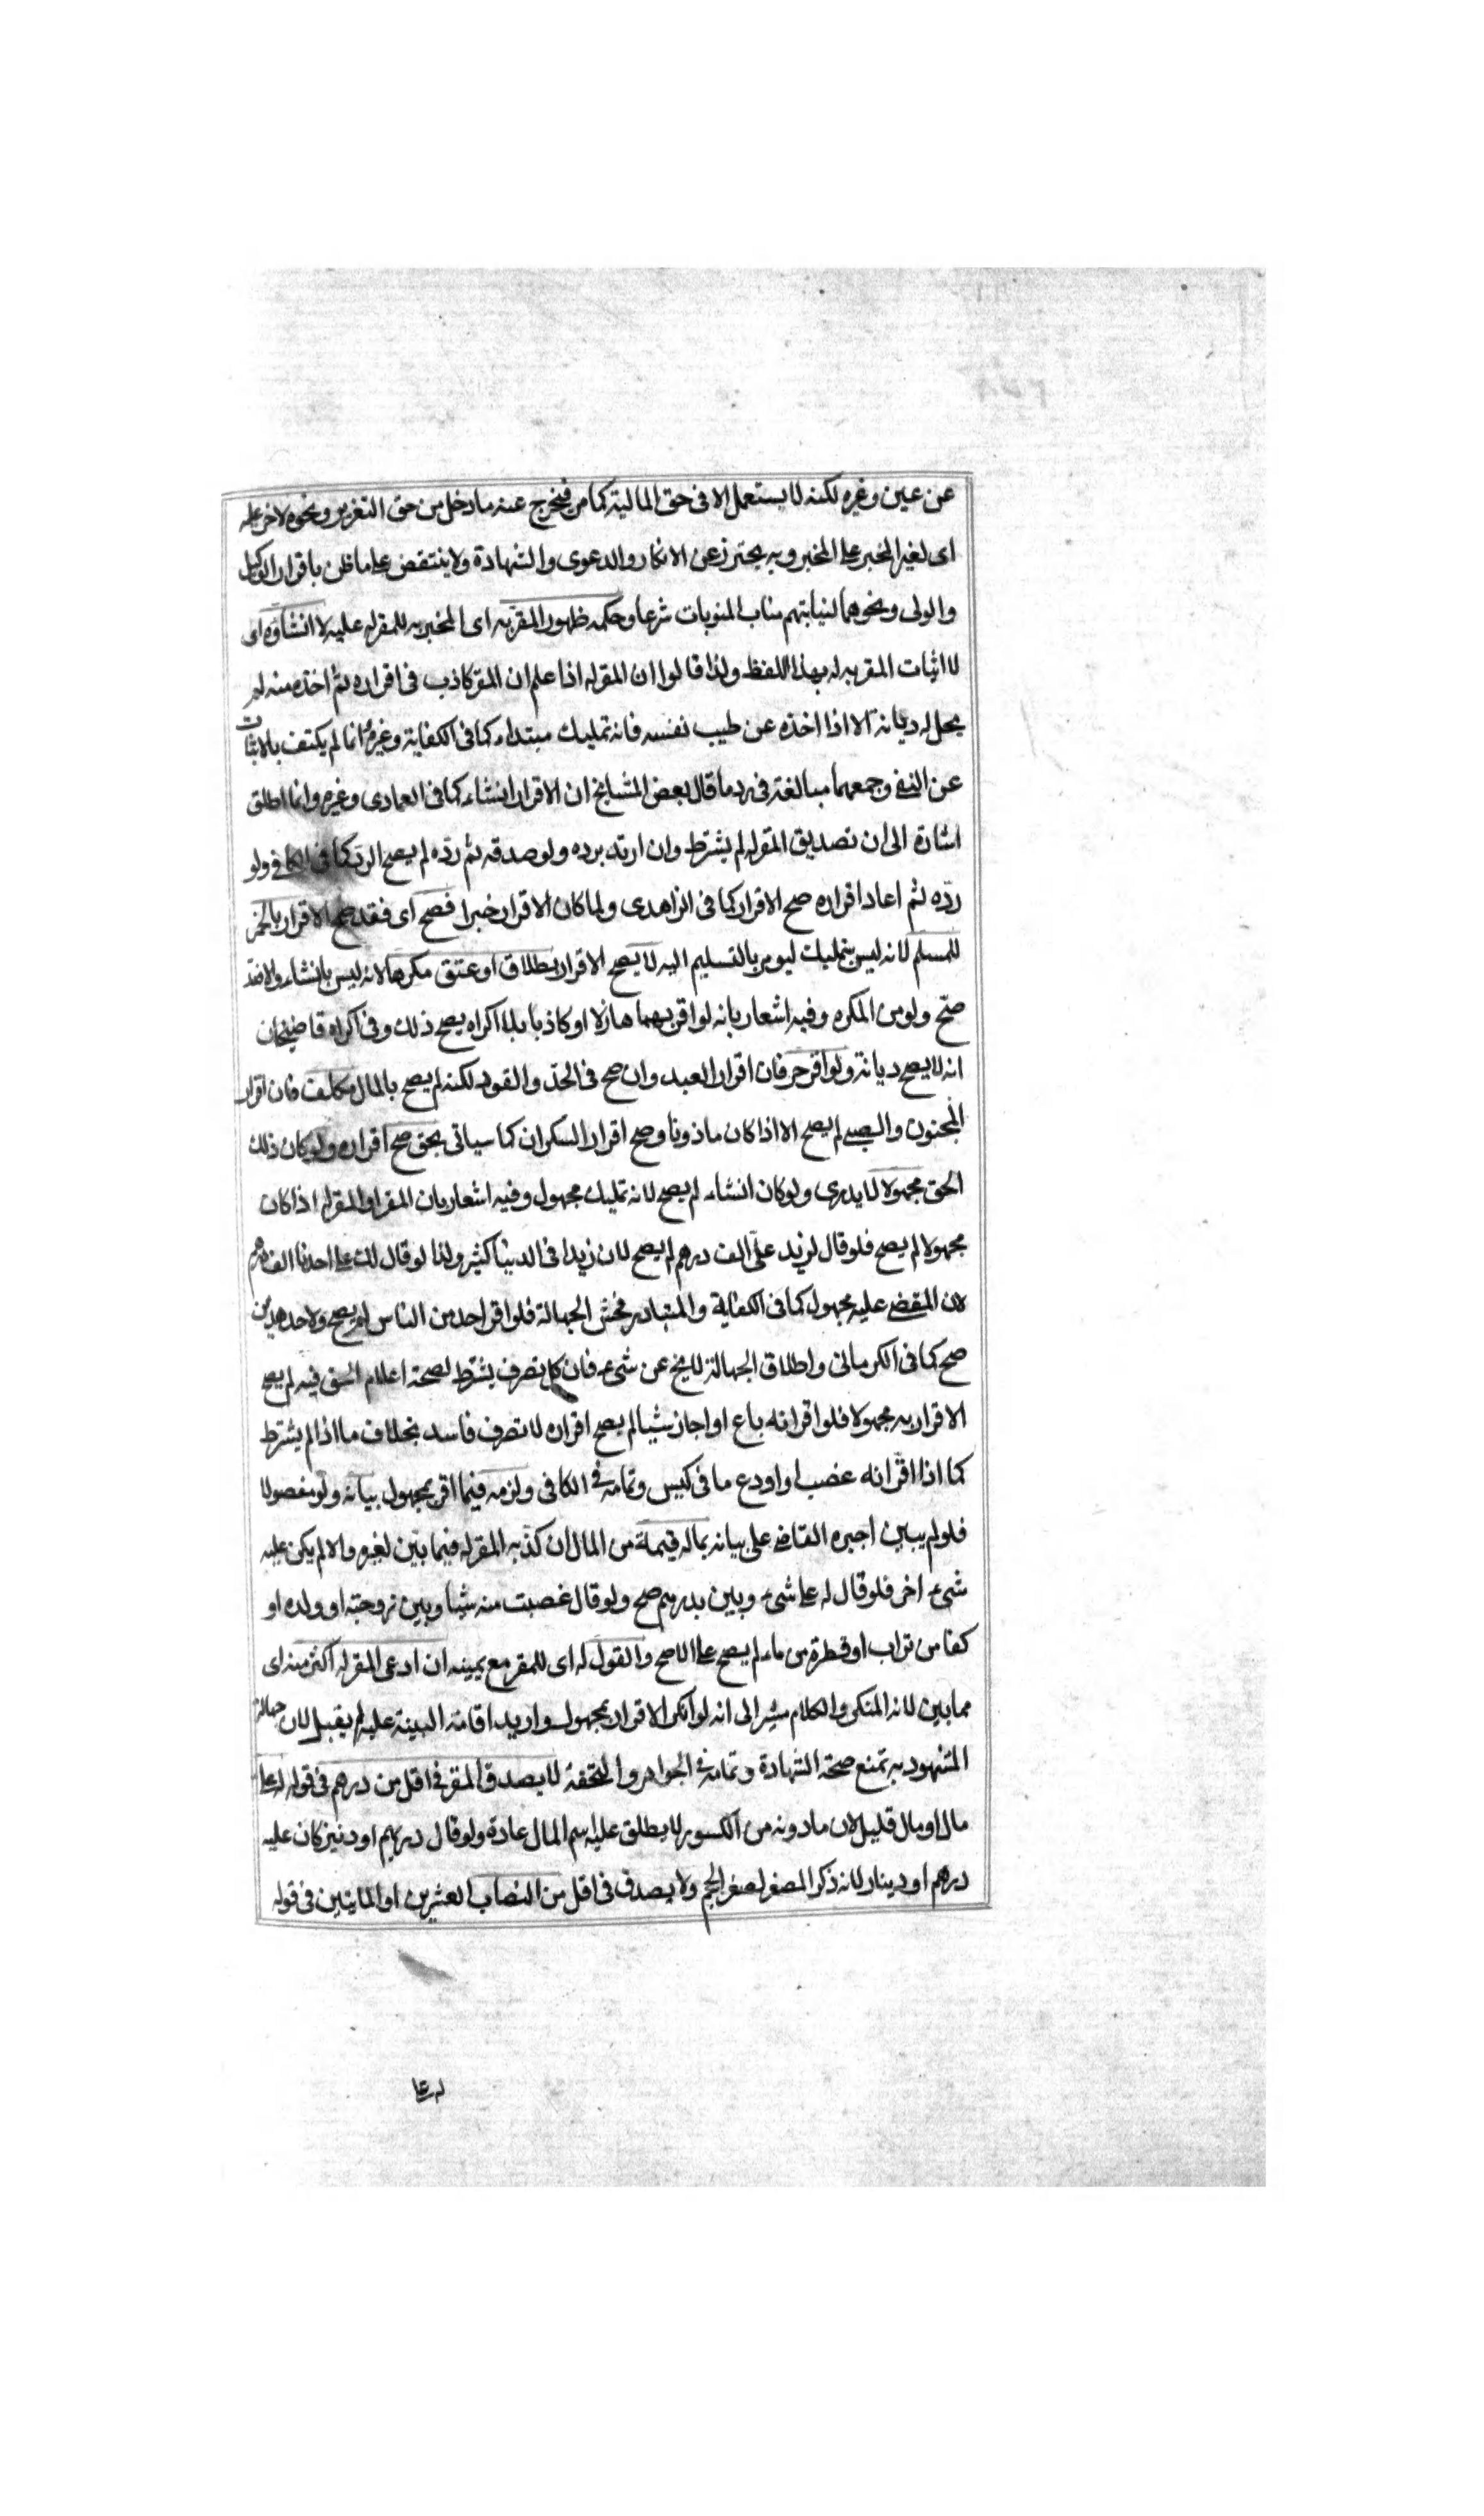 عن عين وغيره لكنه لا يستعمل الا فى حق المالية كما مر فيخرج عنه ما دخل من حق التعزير ونحوه لاخر عليه
اى لغير المخبر على المخبر وبه يحترز عن الانكار والدعوى والشهادة ولا ينتقض على ما ظن باقرار الوكيل
والولى ونحوهما لنيابتهم مناب المنوبات شرعا وحكمه ظهور المقر به اى المخبر به للمقر له عليه لا انشاؤه اى
لا اثبات المقر به له بهذا اللفظ ولذا قالوا ان المقر له اذا علم ان المقر كاذب فى اقراره ثم اخذه منه لم
يحل له ديانة الا اذا اخذه عن طيب نفسه فانه تمليك مبتداء كما فى الكفاية وغيره انما لم يكتف بالاثبات
عن النفى وجمعهما مبالغة فى رد ما قال بعض المشايخ ان الاقرار انشاء كما فى العمادى وغيره وانما اطلق
اشارة الى ان تصديق المقر له لم يشترط وان ارتد برده ولو صدقه ثم رده لم يصح الرد كما فى الكافى ولو
رده ثم اعاد اقراره صح الاقرار كما فى الزاهدى ولما كان الاقرار خبرا فصح اى فقد صح الاقرار بالخمر
للمسلم لانه ليس بتمليك ليومر بالتسليم اليه لا يصح الاقرار بطلاق او عتق مكرها لانه ليس بانشاء والا فقد
صح ولو من المكره وفيه اشعار بانه لو اقر بهما هازلا او كاذبا بلا اكراه يصح ذلك وفى اكراه قاضيخان
انه لا يصح ديانة ولو اقر حر فان اقرار العبد وان صح فى الحد والقود لكنه لم يصح بالمال مكلف فان اقرار
المجنون والصبى لم يصح الا اذا كان ماذونا وصح اقرار السكران كما سياتى بحق صح اقراره ولو كان ذلك
الحق مجهولا لا يدرى ولو كان انشاء لم يصح لانه تمليك مجهول وفيه اشعار بان المقر او المقر له اذا كان
مجهولا لم يصح فلو قال لزيد على الف درهم لم يصح لان زيدا فى الدنيا كثير ولذا لو قال لك على احدنا الف درهم
لان المقضى عليه مجهول كما فى الكفاية والمتبادر فحش الجهالة فلو اقر احد من الناس لم يصح ولاحد هذين
صح كما فى الكرمانى واطلاق الجهالة لا يخ عن شىء فان كل تصرف يشترط لصحة اعلام الحق فيه لم يصح
الاقرار به مجهولا فلو اقر انه باع او اجاز شيئا لم يصح اقراره لا تصرف فاسد بخلاف ما اذا لم يشترط
كما اذا اقر انه غصب او اودع ما فى كيس وتمامه فى الكافى ولزمه فيما اقر بمجهول بيانه ولو مفصولا
فلو لم يبين اجبره القاضى على بيانه بماله قيمة من المال ان كذبه المقر له فيما بين لغيره والا لم يكن عليه
شىء اخر فلو قال له على شىء وبين بدرهم صح ولو قال غصبت منه شيئا وبين زوجته او ولده او
كفا من تراب او قطرة من ماء لم يصح على الاصح والقول له اى للمقر مع يمينه ان ادعى المقر له اكثر منه اى
مما بين لانه المنكر والكلام مشير الى انه لو انكر الاقرار بمجهول واريد اقامة البينة عليه لم يقبل لان جهالة
المشهود به تمنع صحة الشهادة وتمامه فى الجواهر والتحفة لا يصدق المقر فى اقل من درهم فى قوله له على
مال او مال قليل لان ما دونه من الكسور لا يطلق عليه اسم المال عادة ولو قال دريهم او دنينير كان عليه
درهم او دينار لانه ذكر المصغر لصغر الحجم ولا يصدق فى اقل من النصاب العشرين او المايتين فى قوله
له على